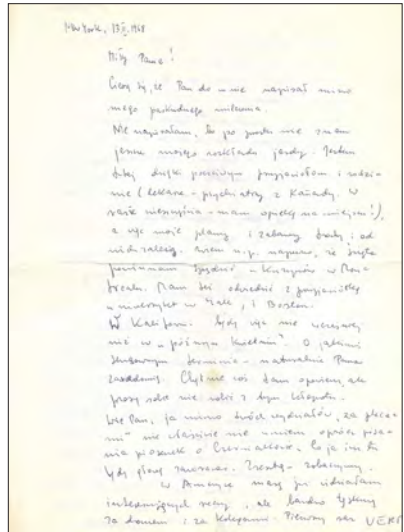 New York, 13 1968
Miły Panie!
Cieszę się, że Pan do mnie napisał mimo
mego milczenia.
Nie napisałam, bo po prostu nie znam
jeszcze mojego rozkładu jazdy. Jestem
tutaj dzięki przyjaciołom i
(lekarze - psychiatrzy z Kanady. W
razie nieszczęścia - mam opiekę na miejscu!),
a więc moje plany i zabawy i od
nich zależą. Wiem n.p. napewno, że
powinnam spędzić u Kuzynów w
Mam też odwiedzić z przyjaciółką
uniwersytet w Yale, i Boston.
W Kaliforni. będę więc nie wcześniej
niż w "późnym kwietniu". O jakimś
terminie - naturalnie Pana
zawiadomię. Chętnie coś tam opowiem, ale
proszę sobie nie robić z tym kłopotu.
Wie Pan, ja mimo dwóch wydziałów "za pleca-
mi" nie właściwie nie umiem oprócz pisa-
nia piosenek o Czerniakowie. Co ja im tu
będę głowę zawracać. Zresztą - zobaczymy.
W Ameryce masę już widziałam
interesujących rzeczy, ale bardzo tęsknię
za domem i za kolegami. Pierwszy raz